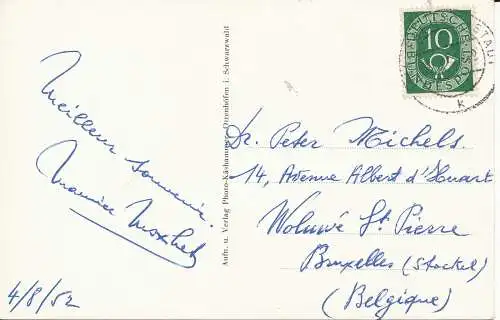 Meilleur souvenir
Maurice
4/8/52
Aufn. u. Verlag Photo-Käshammer, Ottenhöfen i. Schwarzwald
DEUTSCHE
BUNDESPOST
10
K
Dr. Peter Michels.
14, Avenue Albert d'Huart
Woluwé St. Pierre
Bruxelles (Stockel)
(Belgique)